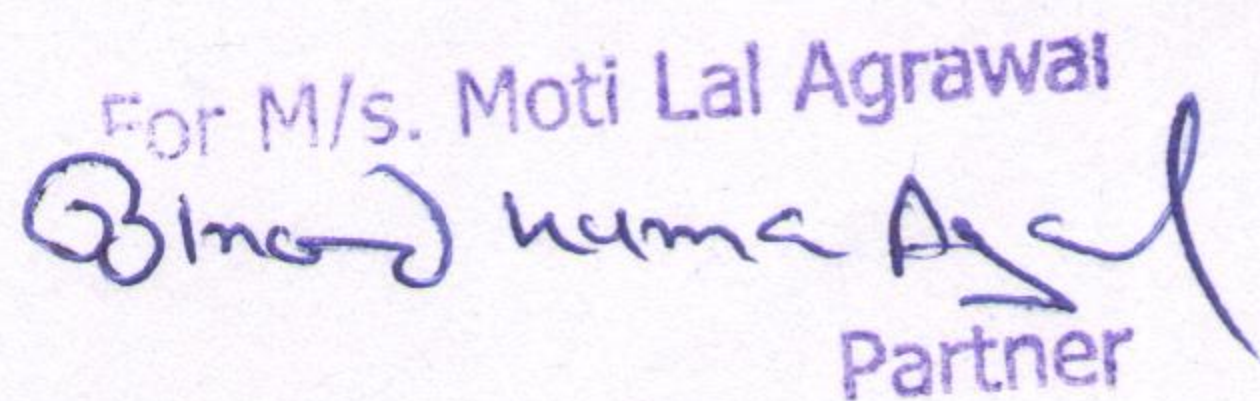 For M/s. Moti Lal Agrawal
Binod Kumar Agal
Partner